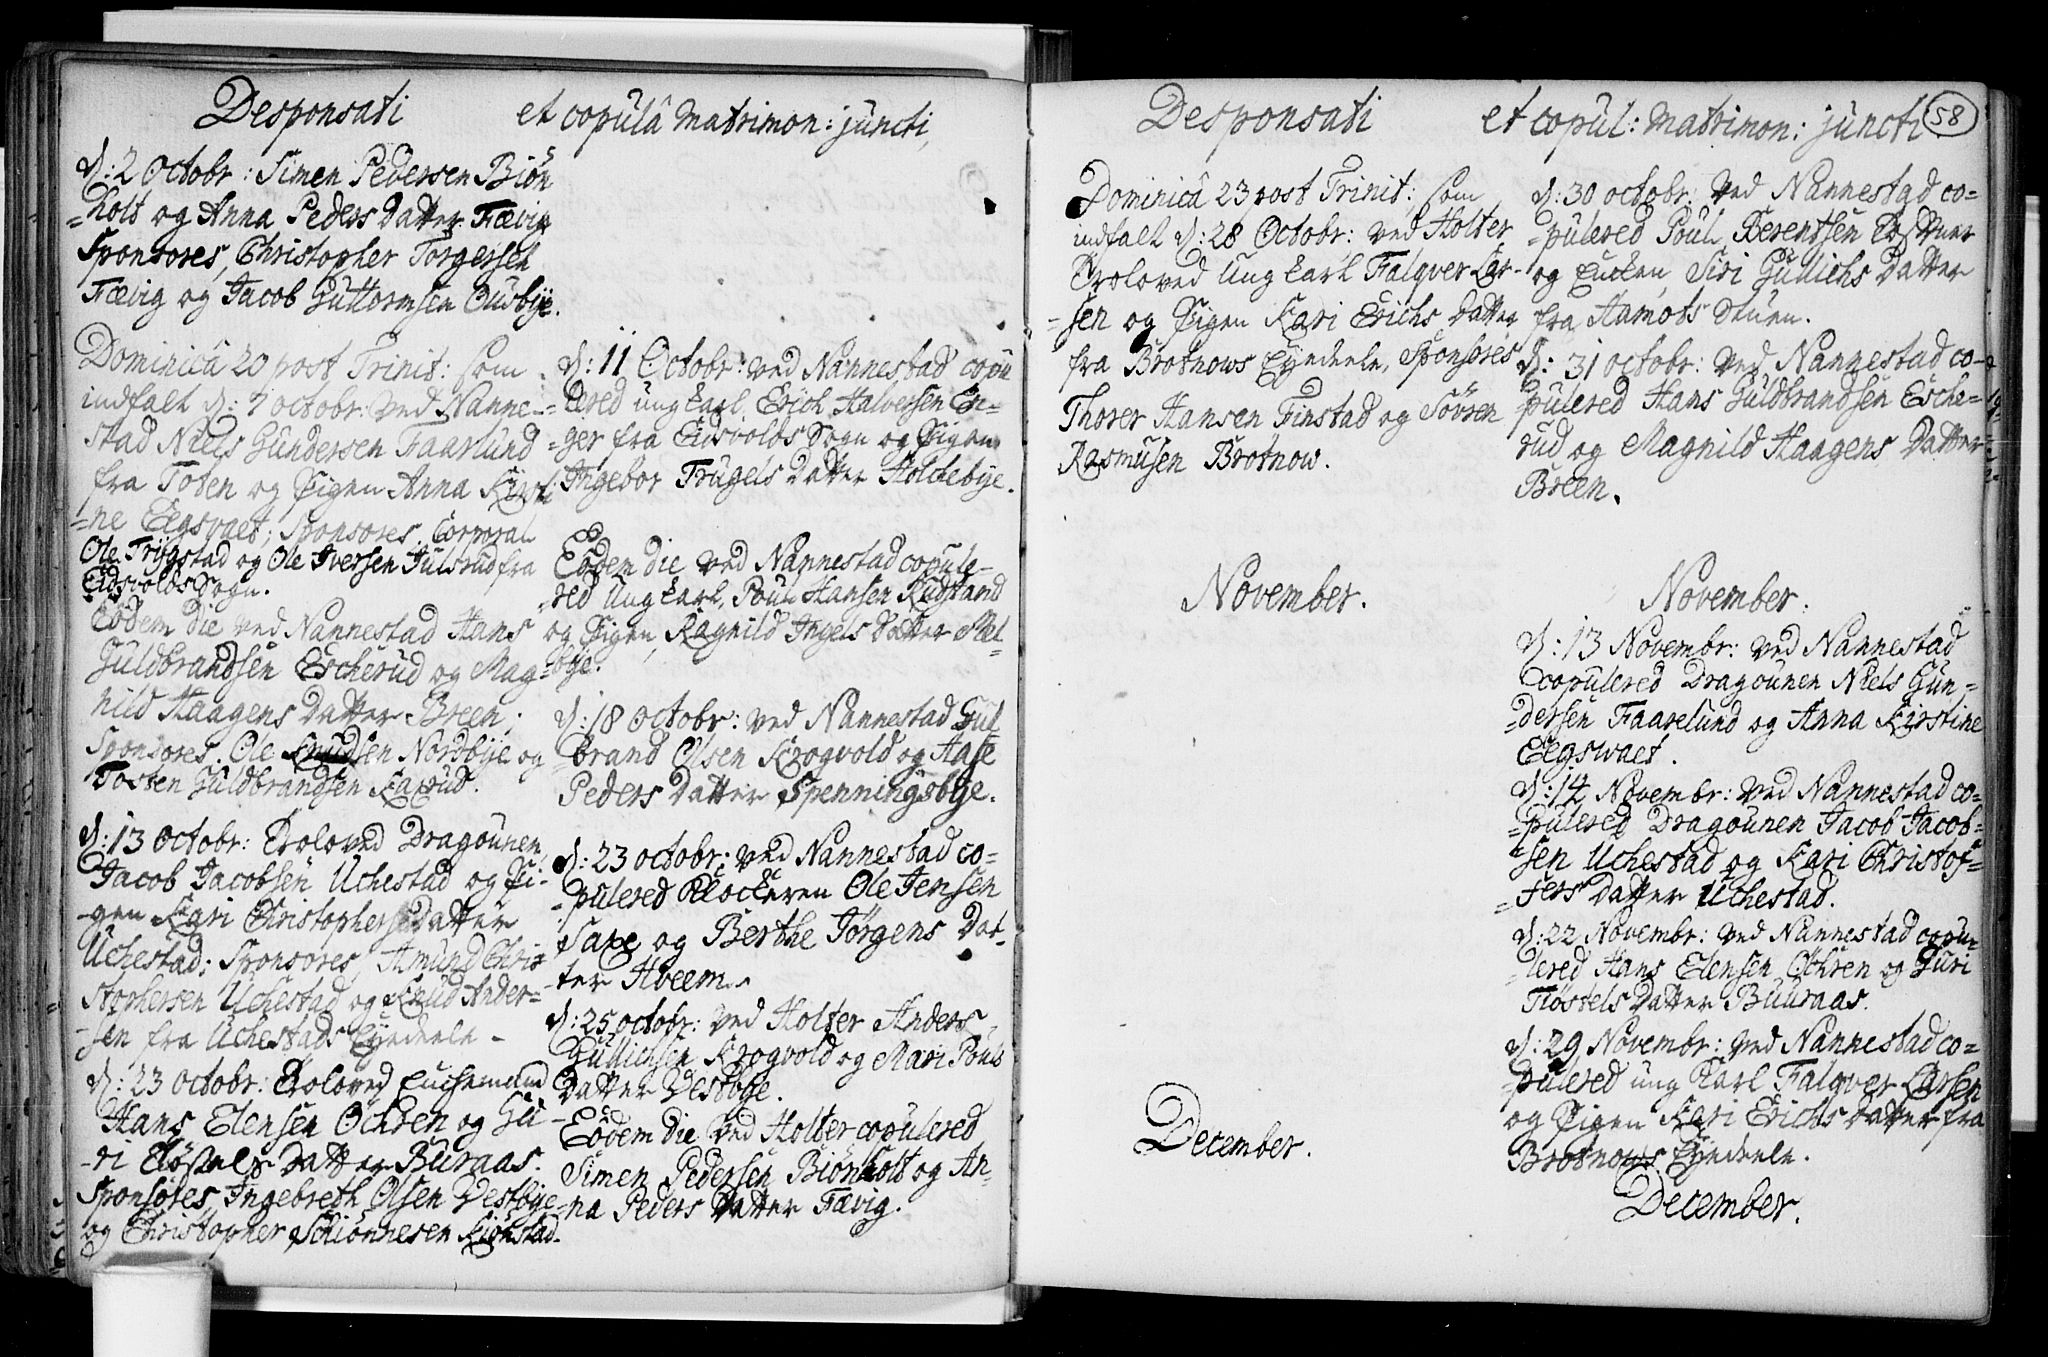 Desponsati et copulâ matrimon: juncti,
D: 2 Octobr: Simen Pedersen Biön
=holt og Anna Peders Datter Fævig
Sponsores, Christopher Torgersen
Fævig og Jacob Guttormsen Ousbÿe.
Dominicâ 20 post Trinit: som
indfalt d: 7 octobr: ved Nanne-
stad Niels Gundersen Faarlund
fra Toten og Pigen Anna Kirsti
=ne Eegsvaet; Sponsores, Corporal
Ole Trÿgstad og Ole Iversen Julsrud fra
Eidsvolds Sogn.
Eodem die ved Nannestad Hans
Guldbrandsen Escherud og Mag=
hild Haagens Datter Breen;
Sponsores, Ole Knudsen Nordbÿe og
Tosten Guldbrandsen Karud.
D: 13 octobr: Troloved Dragounen
Jacob Jacobsen Uchestad og Pi-
-gen Kari Christophers Datter
Uchestad; Sponsores, Amund Chri-
stophersen Uchestad og Knud Ander=
-sen fra Uchestads Eÿedeele -
D: 23 octobr: Troloved Enchemand
Hans Elensen Ochren og Gu-
-ri Flöstels Datter Buraas.
Sponsores, Ingebreth Olsen Vestbÿe
og Christopher Schiönnesen Kiönstad.
D: 11 Octobr: ved Nannestad copu
=lered ung karl Erich Halversen En=
=ger fra Eidsvolds Sogn og Pigen
Ingebor Trugels Datter Holckebÿe.
Eodem die ved Nannestad copule-
=red Ung karl, Poul Hansen Rudsland
og Pigen, Ragnild Ingels Datter Mel-
=bÿe.
D: 18 octobr: ved Nannestad Gul
=brand Olsen Krogvold og Aase
Peders Datter Spenningsbÿe.
D: 23 octobr: ved Nannestad co=
-pulered Klockeren Ole Jensen
Saxe og Berthe Jörgens Dat-
-ter Hveem.
D: 25 octobr: ved Holter Anders
Gullichsen Krogvold og Mari Pouls
Datter Vestbÿe.
Eodem die ved Holter copulered
Simen Pedersen Biönholt og An-
=na Peders Datter Fævig.
Desponsati et copul: matrimon: juncti 58
Dominicâ 23 post Trinit: som
indfalt d: 28 Octobr: ved Holter
Troloved Ung karl Falqver Lar-
=sen og Pigen Kari Erichs Datter
fra Brotnows Eÿedeele, Sponsores
Thorer Hansen Finstad og Sövren
Rasmusen Brotnow.
November.
December.
D: 30 octobr: ved Nannestad co-
=pulered Poul Berentsen Tostuer
og Encken, Siri Gullichs Datter
fra Hamots Stuen.
D: 31 octobr: ved Nannestad co-
pulered Hans Guldbrandsen Esche-
rud og Magnild Haagens Datter
Breen.
November.
D: 13 Novembr: ved Nannestad
copulered Dragounen Niels Gun=
=dersen Faarelund og Anna Kirstine
Eegsvaet.
D: 14 Novembr: ved Nannestad co=
=pulered Dragounen Jacob Jacob=
=sen Uchestad og Kari Christof=
=fers Datter Uchestad.
D: 22 Novembr: ved Nannestad copu=
=lered Hans Elensen Ochren og Guri
Flöstels Datter Buuraas.
D: 29 Novembr: ved Nannestad co=
=pulered ung Karl Falqver Larsen
og Pigen Kari Erichs Datter fra
Brotnows Eÿedeele.
December.